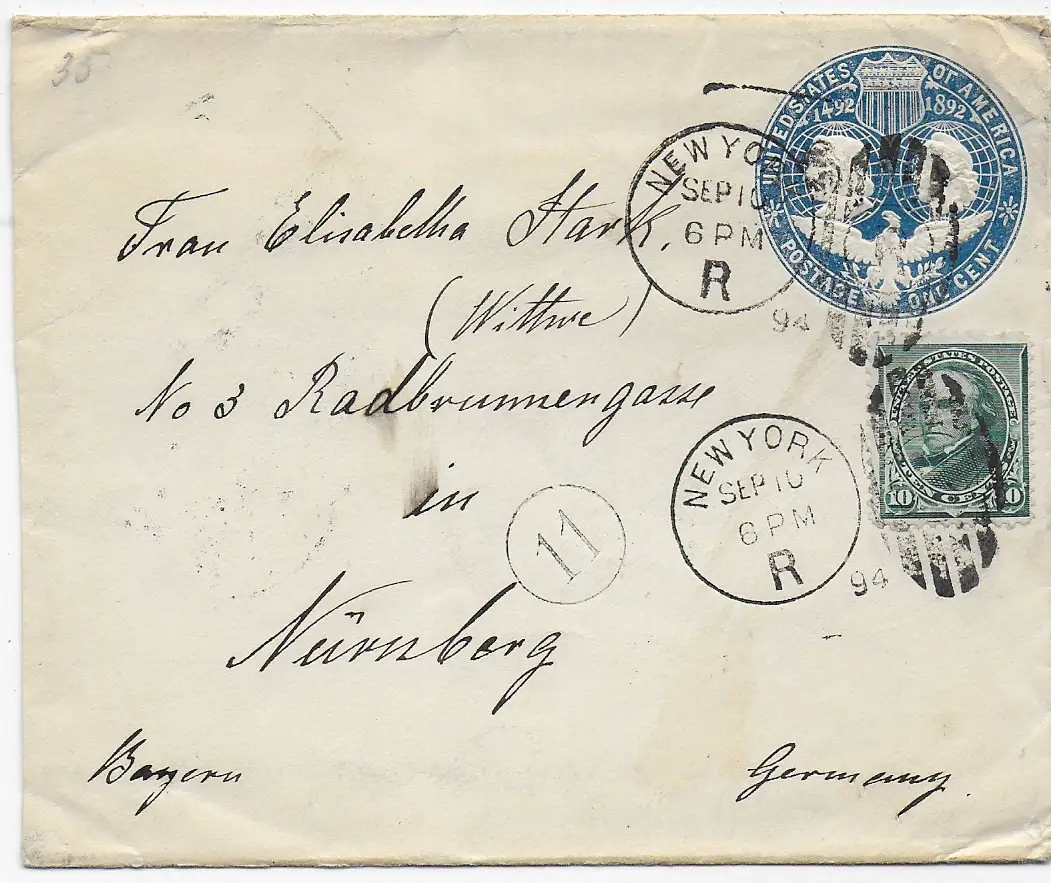 35
UNITED STATES OF AMERICA
1492 1892
POSTAGE ONE CENT
NEW YORK
SEP 10
6 PM
R
94
Frau Elisabetha Stark,
(Wittwe)
No 3 Radbrunnengasse
in
Nürnberg
Bayern
Germany.
11
NEW YORK
SEP 10
6 PM
R
94
UNITED STATES POSTAGE
10 TEN CENTS 10